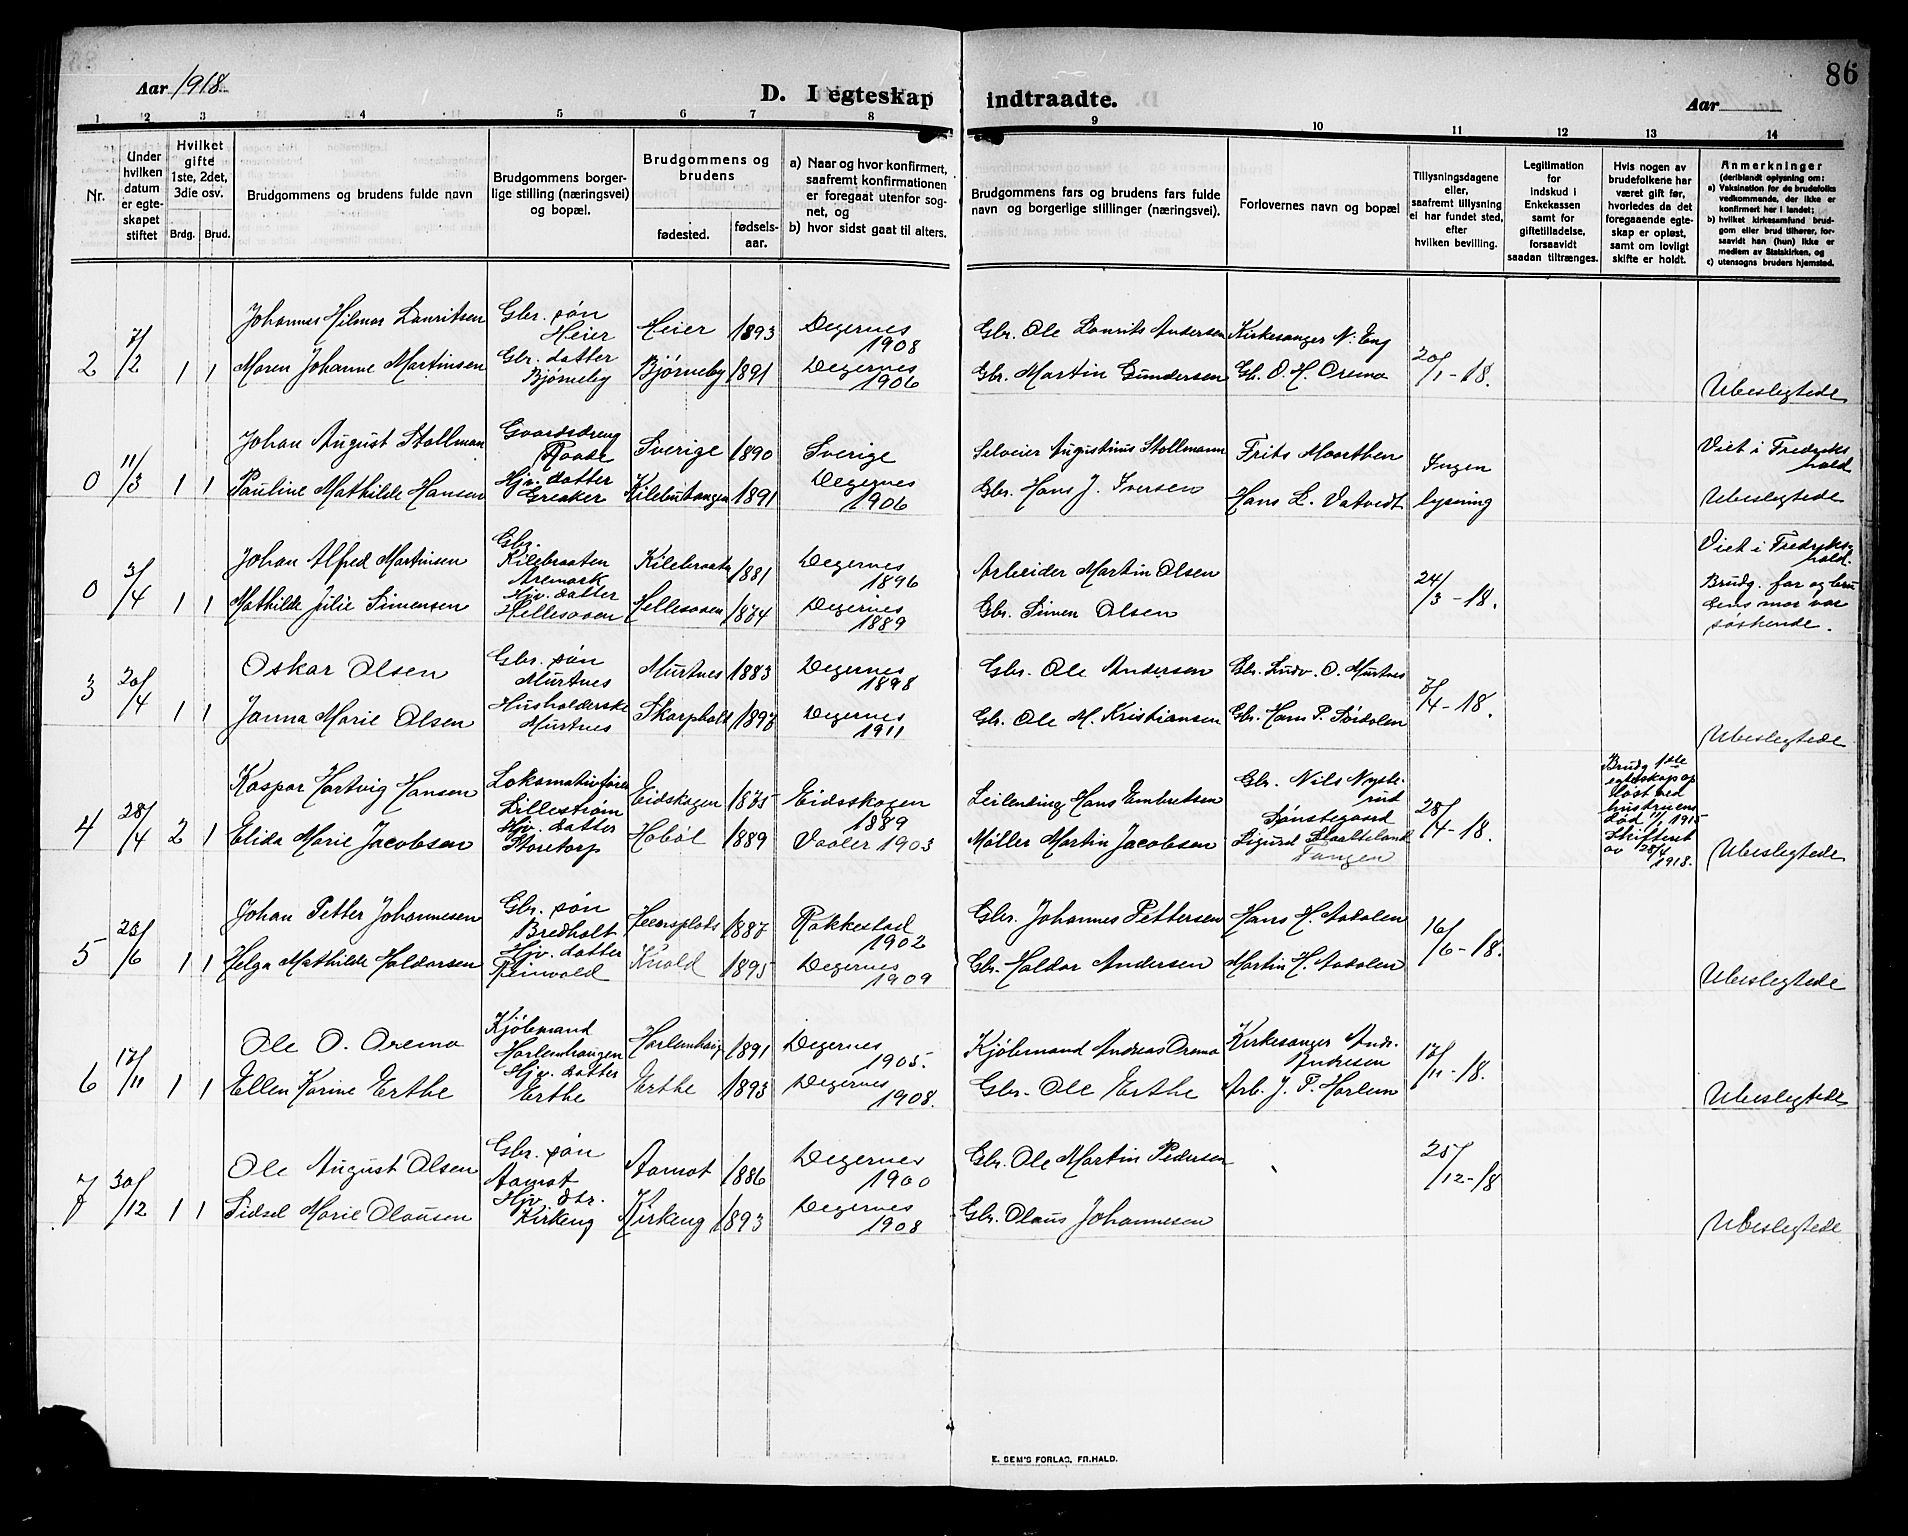 86
Aar 1918.
D. I egteskap indtraadte.
Aar
1 2 3 4 5 6 7 8 9 10 11 12 13 14
Nr.
Under hvilken datum er egteskapet stiftet
Hvilket gifte 1ste, 2det, 3die osv.
Brdg. Brud.
Brudgommens og brudens fulde navn
Brudgommens borgerlige stilling (næringsvei) og bopæl.
Brudgommens og brudens
fødested.
fødselsaar.
a) Naar og hvor konfirmert, saafremt konfirmationen er foregaat utenfor sognet, og
b) hvor sidst gaat til alters.
Brudgommens fars og brudens fars fulde navn og borgerlige stillinger (næringsvei).
Forlovernes navn og bopæl
Tillysningsdagene eller, saafremt tillysning ei har fundet sted, efter hvilken bevilling.
Legitimation for indskud i Enkekassen samt for giftetilladelse, forsaavidt saadan tiltrænges.
Hvis nogen av brudefolkene har været gift før, hvorledes da det foregaaende egteskap er opløst, samt om lovligt skifte er holdt.
Anmerkninger
(deriblandt oplysning om:
a) Vaksination for de brudefolks vedkommende, der ikke er konfirmert her i landet;
b) hvilket kirkesamfund brudgom eller brud tilhører, forsaavidt han (hun) ikke er medlem av Statskirken, og
c) utensogns bruders hjemsted.
2 7/2 1 1
Johannes Hilmar Lauritsen Gbr. søn Heier Heier 1893 Degernes 1908 Gbr. Ole Laurits Andersen Kirkesanger N. Eng
Maren Johanne Martinsen Gbr. datter Bjørneby Bjørneby 1891 Degernes 1906 Gbr. Martin Gundersen Gb. O. H. Oremo 20/1-18. Ubeslegtede
0 11/3 1 1
Johan August Stollman Gaardsdreng Raade Sverige 1890 Sverige Selveier Augustinus Stollmann Frits Moorthen Ingen lysning Viet i Fredrikshald
Pauline Mathilde Hansen Hjv. datter Greaker Kilebutangen 1891 Degernes 1906 Gbr. Hans J. Iversen Hans L. Vatvedt Ubeslegtede
0 3/4 1 1
Johan Alfred Martinsen Gbr. Kilebraaten Aremark Kilebraaten 1881 Degernes 1896 Arbeider Martin Olsen 24/3-18. Viet i Fredrikshald.
Mathilde Julie Simensen Hjv. datter Hellesaaen Hellesaaen 1874 Degernes 1889 Gbr. Simen Olsen Brudg. far og brudens mor var søskende.
3 20/4 1 1
Oskar Olsen Gbr. søn Murtnes Murtnes 1883 Degernes 1898 Gbr. Ole Andersen Gbr. Ludv. O. Murtnes 7/4-18.
Janna Marie Olsen Husholderske Murtnes Skarpholt 1897 Degernes 1911 Gbr. Ole M. Kristiansen Gbr. Hans P. Sørdalen Ubeslegtede
4 28/4 2 1
Kaspar Hartvig Hansen Lokomotivfører Lillestrøm Eidskogen 1875 Eidsskogen 1889 Leilending Hans Embretsen Gbr. Nils Nysterud Sønstegaard 28/4-18. Brudg. 1ste egteskap opløst ved hustruens død 1/1 1915 Skifteret av 28/4 1918.
Elida Marie Jacobsen Hjv. datter Storetorp Hobøl 1889 Vaaler 1903 Møller Martin Jacobsen Sigurd Tangen Ubeslegtede
5 20/6 1 1
Johan Petter Johannesen Gbr. søn Bredholt 1887 Rakkestad 1902 Gbr. Johannes Pettersen Hans H. Aadalen 16/6-18.
Helga Mathilde Haldorsen Hjv. datter Reinvold 1895 Degernes 1909 Gbr. Haldor Andersen Martin H. Aadalen Ubeslegtede
6 17/11 1 1
Ole O. Oremo Kjøbmand Harlemhaugen Harlemhaug 1891 Degernes 1905. Kjøbmand Andreas Oremo Kirkesanger Andr. Andresen 17/11-18.
Ellen Karine Erthe Hjv. datter Erthe Erthe 1893 Degernes 1908. Gbr. Ole Erthe Arb. J. P. Harlem Ubeslegtede
7 30/12 1 1
Ole August Olsen Gbr. søn Aamot Aamot 1886 Degernes 1900 Gbr. Ole Martin Pedersen 25/12-18
Sidsel Marie Olausen Hjv. dtr. Kirkeng Kirkeng 1893 Degernes 1908 Gbr. Olaus Johannesen Ubeslegtede
E. SEM'S FORLAG, FR.HALD.